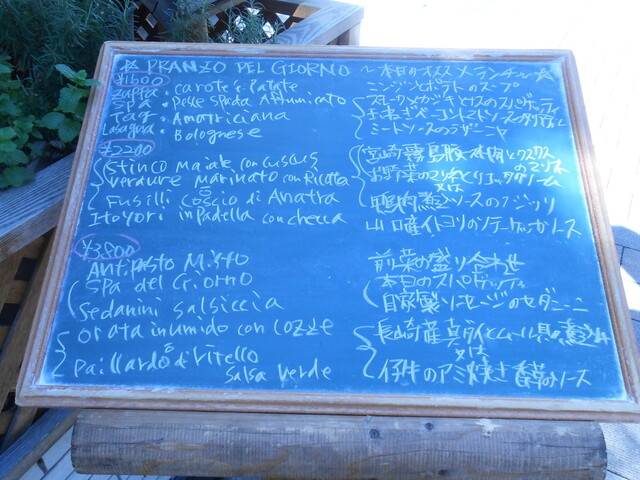 ☆ PRANZO DEL GIORNO ～本日のオススメランチ～☆
¥1600
Zuppa: carote e Patate ニンジンとポテトのスープ
SPA: Pesce Spada Affumicato スモークメカジキとナスのスパゲッティ
Tag: Amatriciana ベーコントマトソースのタリアテッレ
Lasagna: Bolognese ミートソースのラザーニャ
¥2200
Stinco Maiale con cuscus 宮崎霧島豚 とクスクス
verdure Marinato con Ricotta お野菜のマリネとリコッタクリーム
o 又は
Fusilli Coscio di Anatra 鴨肉 ソースのフジッリ
Itoyori in Padella con checca 山口産イトヨリのソテーケッカソース
¥3800
Antipasto Misto 前菜の盛り合わせ
SPA del Giorno 本日のスパゲッティ
Sedanini Salsiccia 自家製ソーセージのセダニーニ
Orata inumido con cozze 長崎産真タイとムール貝の蒸し
o 又は
Paillardo di Vitello 仔牛のアミ焼き香草ソース
Salsa verde